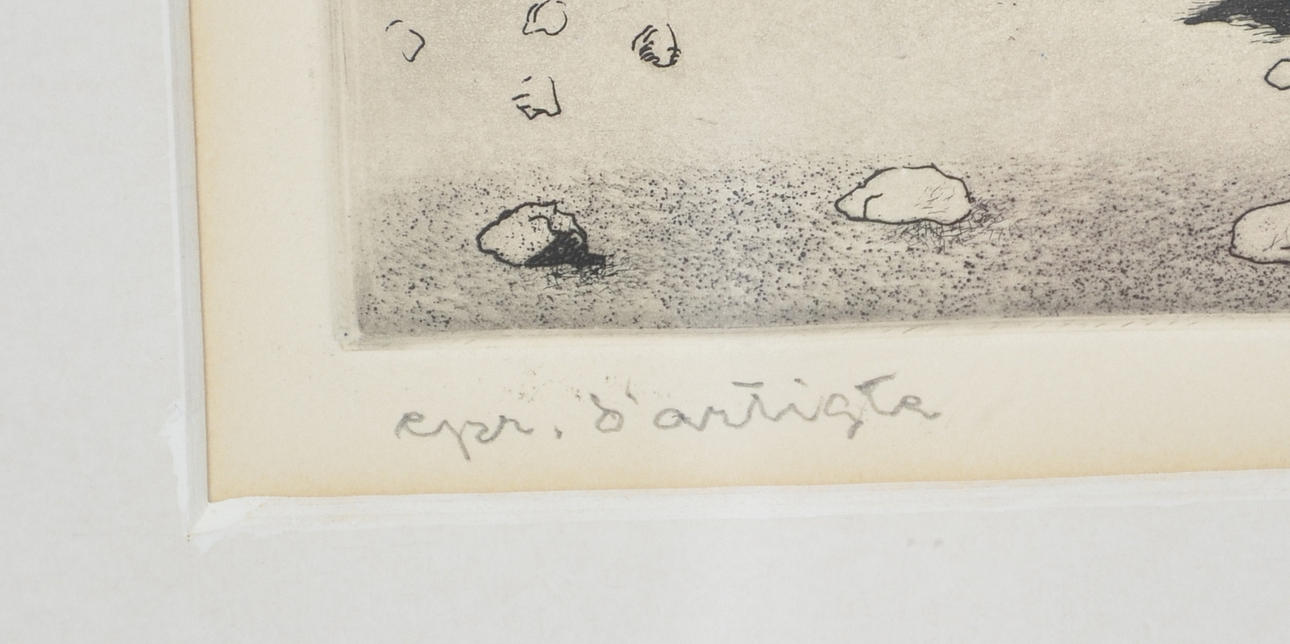 epr. d'artiste